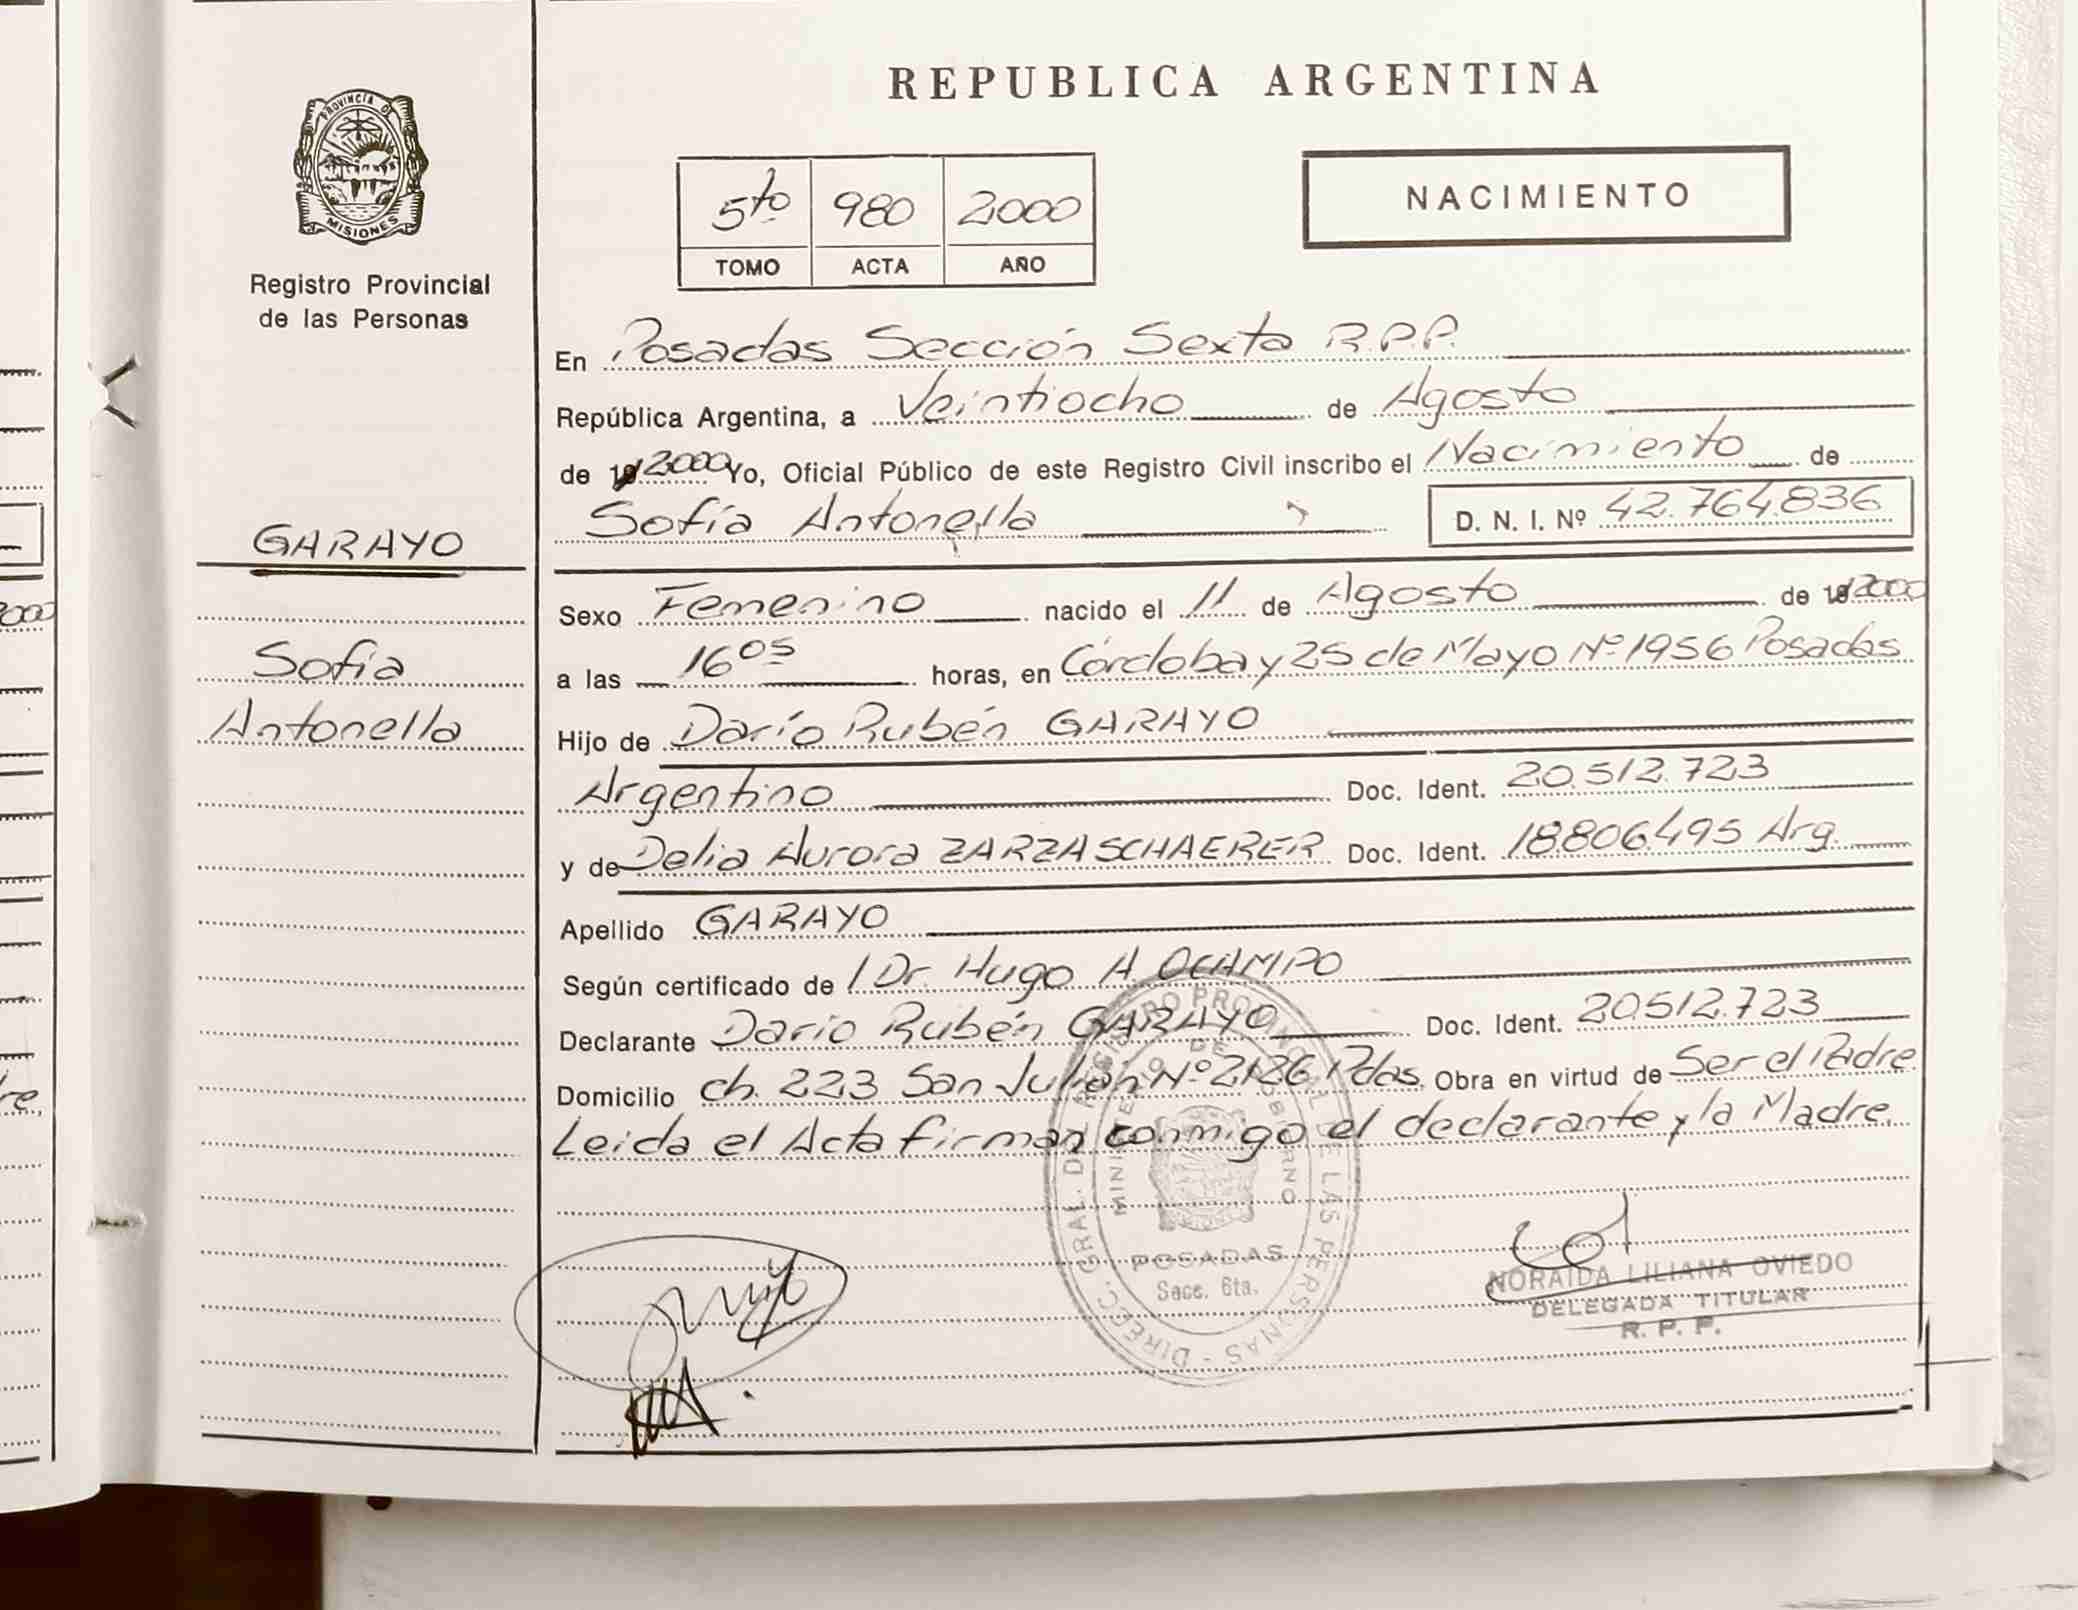 REPUBLICA ARGENTINA
PROVINCIA DE
MISIONES
Registro Provincial
de las Personas
5to 980 2000
TOMO ACTA AÑO
NACIMIENTO
En Posadas Sección Sexta R.P.P.
República Argentina, a Veintiocho de Agosto
de 19 2000 Yo, Oficial Público de este Registro Civil inscribo el Nacimiento de
Sofía Antonella D. N. I. Nº 42.764.836
GARAYO
Sofía
Antonella
Sexo Femenino nacido el 11 de Agosto de 19 2000
a las 16 05 horas, en Córdoba y 25 de Mayo Nº 1956 Posadas
Hijo de Darío Rubén GARAYO
Argentino Doc. Ident. 20.512.723
y de Delia Aurora ZARZA SCHAERER Doc. Ident. 18.806.495 Arg.
Apellido GARAYO
Según certificado de Dr. Hugo A. OCAMPO
Declarante Darío Rubén GARAYO Doc. Ident. 20.512.723
Domicilio ch. 223 San Julián Nº 2126 Pdas. Obra en virtud de Ser el Padre.
Leida el Acta firman conmigo el declarante y la Madre.
DIREC. GRAL. DEL REGISTRO PROVINCIAL DE LAS PERSONAS -
MINISTERIO DE GOBIERNO
POSADAS
Secc. 6ta.
NORAIDA LILIANA OVIEDO
DELEGADA TITULAR
R. P. P.
2000